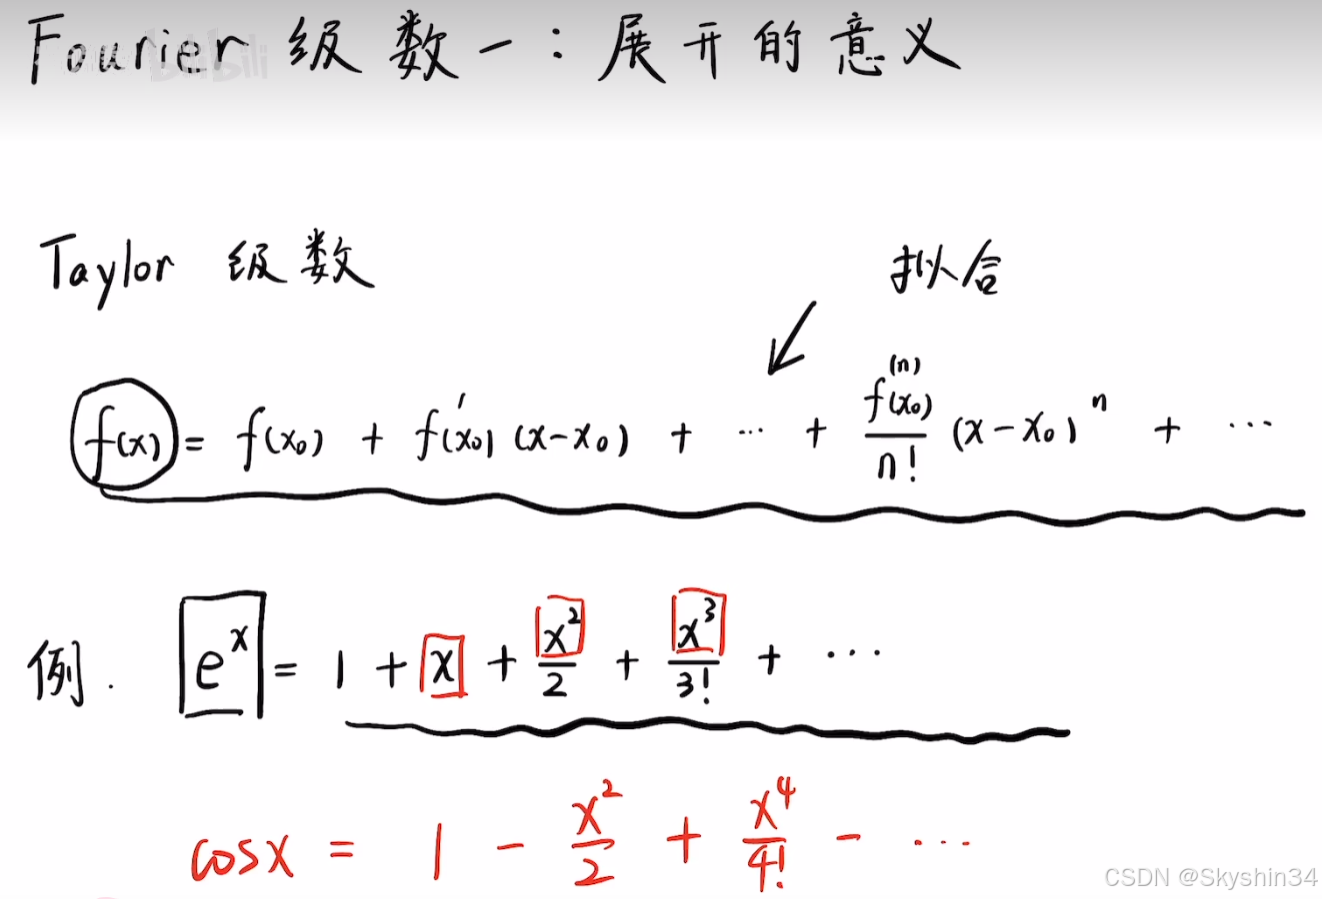 Fourier 级数一：展开的意义
bilibili
Taylor 级数
拟合
f(x) = f(x₀) + f′(x₀)(x-x₀) + ⋯ + f⁽ⁿ⁾(x₀)/n! (x-x₀)ⁿ + ⋯
例. eˣ = 1 + x + x²/2 + x³/3! + ⋯
cosx = 1 - x²/2 + x⁴/4! - ⋯
CSDN @Skyshin34